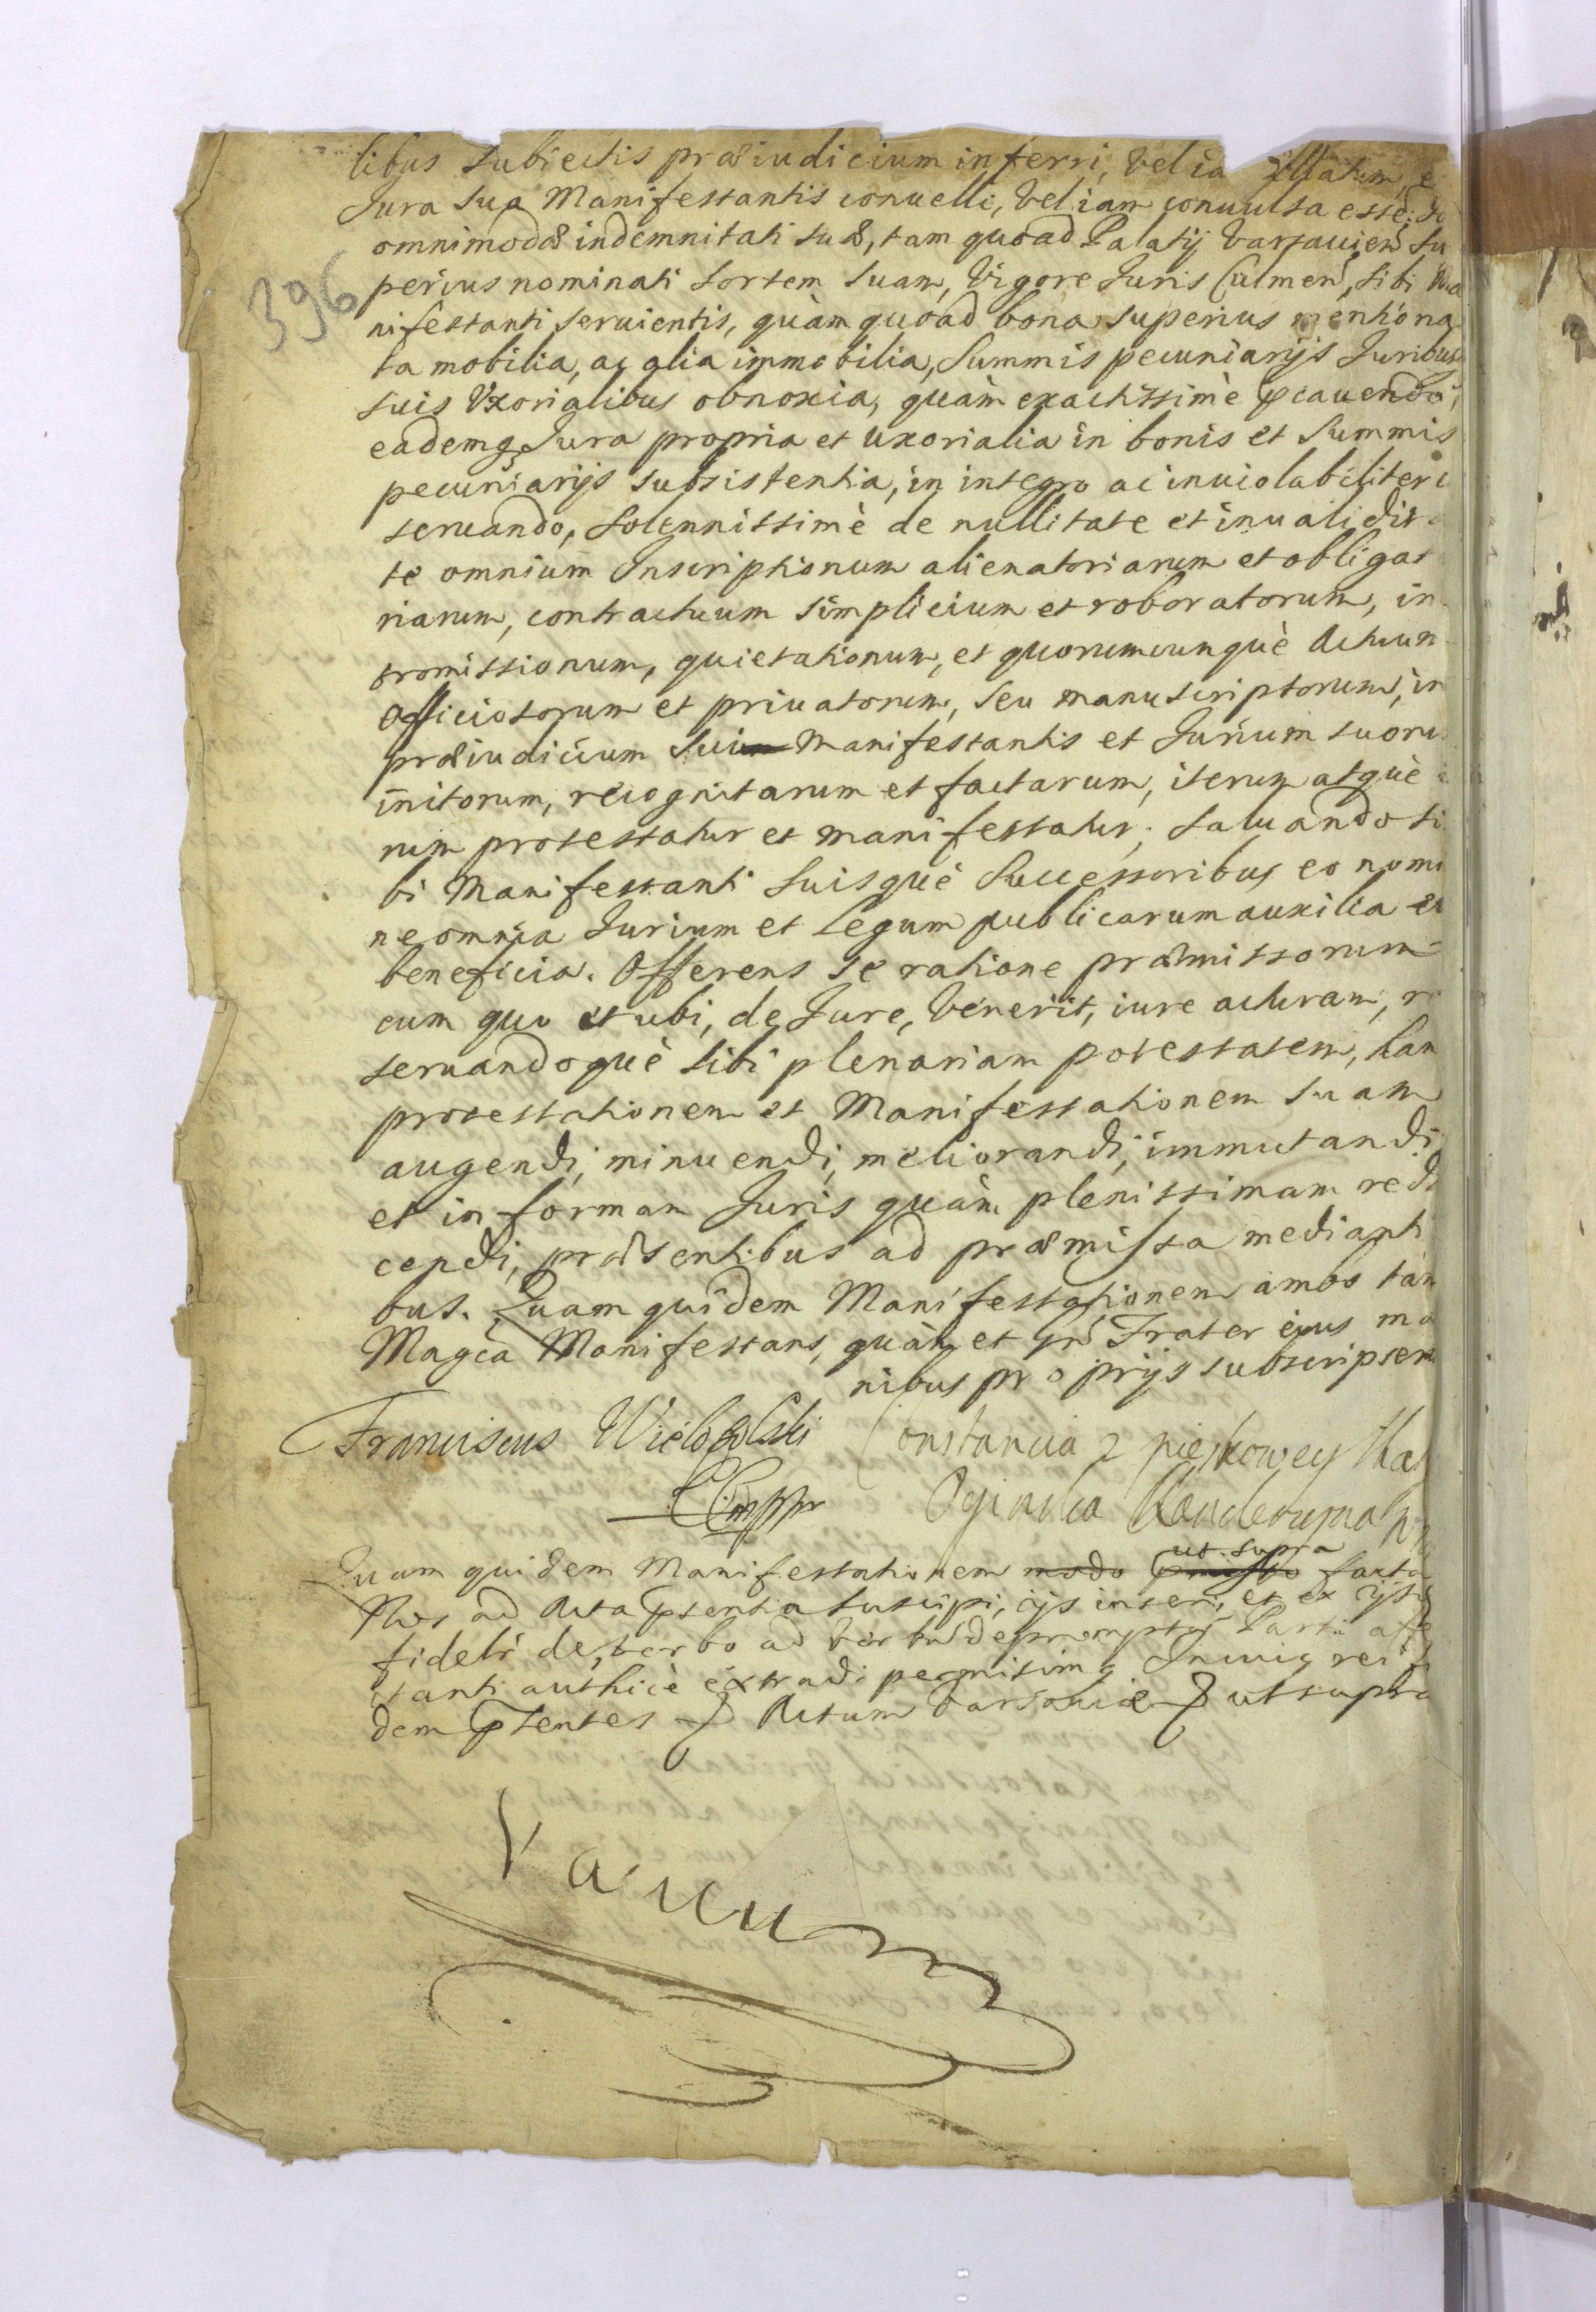 libus subiectis præiudicium inferri, vel ia illatum, e
Jura sua Manifestantis conuelli, vel iam conuulsa esse;
omnimodæ indemnitati suæ, tam quoad Palatij Varsauien su
396 perius nominati sortem suam, Vigore Juris Culmen, sibi Ma
nifestanti seruientis, quàm quoad bona superius mentiona
ta mobilia, ac alia immobilia, Summis pecuniarijs Juribus
suis Vxorialibus obnoxia, quàm exactissimè pcauendo,
eademq Jura propria et uxorialia in bonis et Summis
pecuniarijs subsistentia, in integro ac inuiolabiliter c
seruando, solennissimè de nullitate et inualidit
te omnium Inscriptionum alienatoriarum et obligat
riarum, contractuum simplicium et roboratorum, in
tromissionum, quietationum, et quorumcunquè Actuum
Officiosorum et priuatorum, seu manuscriptorum, in
præiudicium sui Manifestantis et Jurium suoru
initorum, recognitarum et factarum, iterum atquè i
rum protestatur et manifestatur; saluando si
bi Manifestanti suisquè Successoribus eo nomi
ne omnia Jurium et Legum publicarum auxilia et
beneficia. Offerens se ratione præmissorum
cum quo et ubi, de Jure, venerit, iure acturam, re
seruandoquè sibi plenariam potestatem, han
protestationem et Manifestationem suam
augendi, minuendi, meliorandi, immutandi,
et in formam Juris quàm plenissimam redu
cendi, præsentibus ad præmissa medianti
bus. Quam quidem Manifestationem ambo tam
Magca Manifestans, quàm et Gñs Frater eius ma
nibus proprijs subscripser
Franciscus Wielopolski
Constancia z pieskowey Skal
Oginska
Quam quidem Manifestationem modo ut supra facta
Nos ad Acta pñentia suscipi, ijs inseri, et ex ijsd
fideli de verbo ad verbu depromptu Parti affe
ctanti authicè extradi permisimq. Incuiq rei f
dem pñentes Actum Varsauiæ ut supra